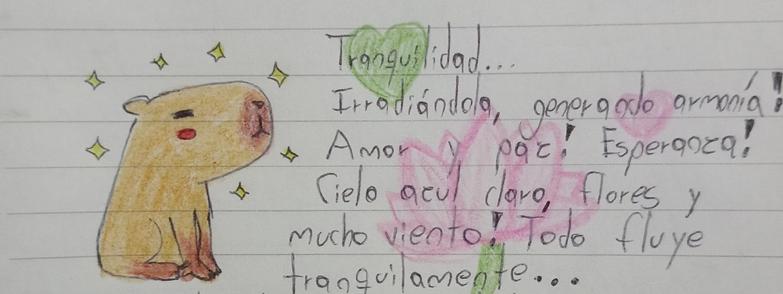 Tranquilidad...
Irradiándola, generando armonía!
Amor y paz! Esperanza!
Cielo azul claro, flores y
mucho viento! Todo fluye
tranquilamente...